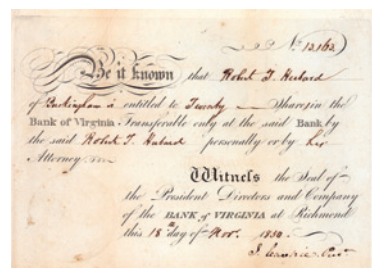 No 12162
Be it known that Robert T. Hubard
of Buckingham is entitled to Twenty Shares in the
Bank of Virginia Transferable only at the said Bank by
the said Robert T. Hubard personally or by his
Attorney
Witness the Seal of
the President Directors and Company
of the BANK of VIRGINIA at Richmond
this 18th day of Nov. 1830.